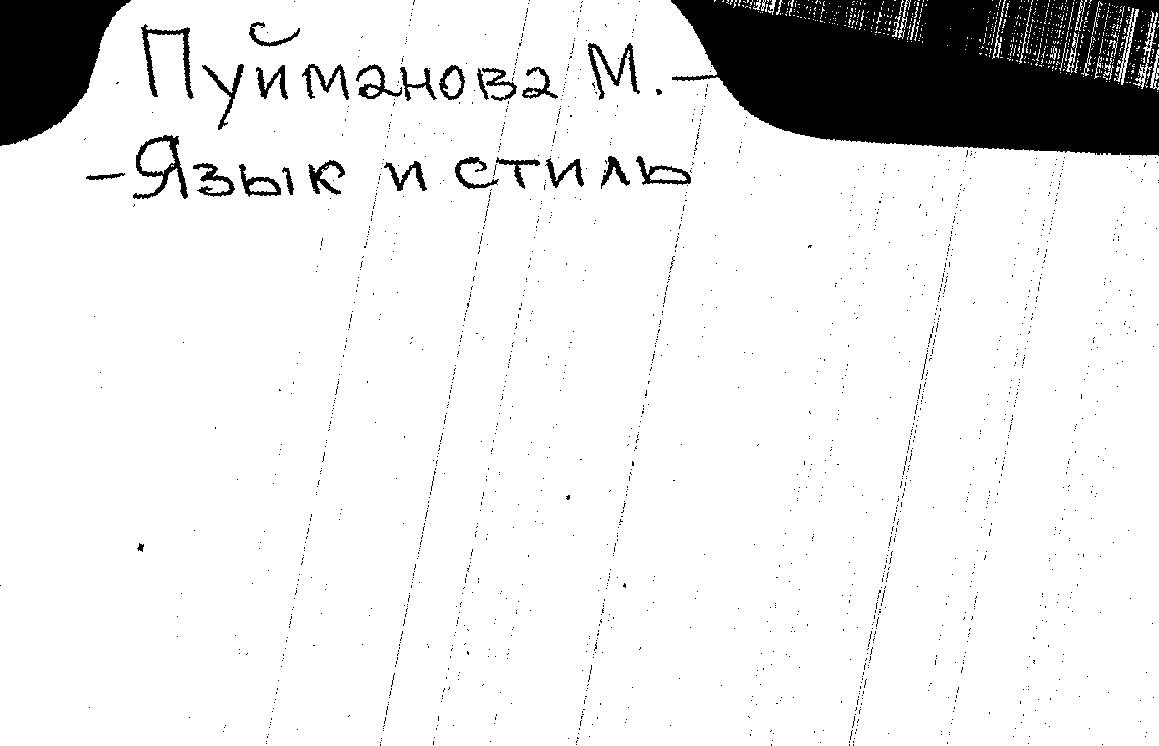 Пуйманова М. —
— Язык и стиль